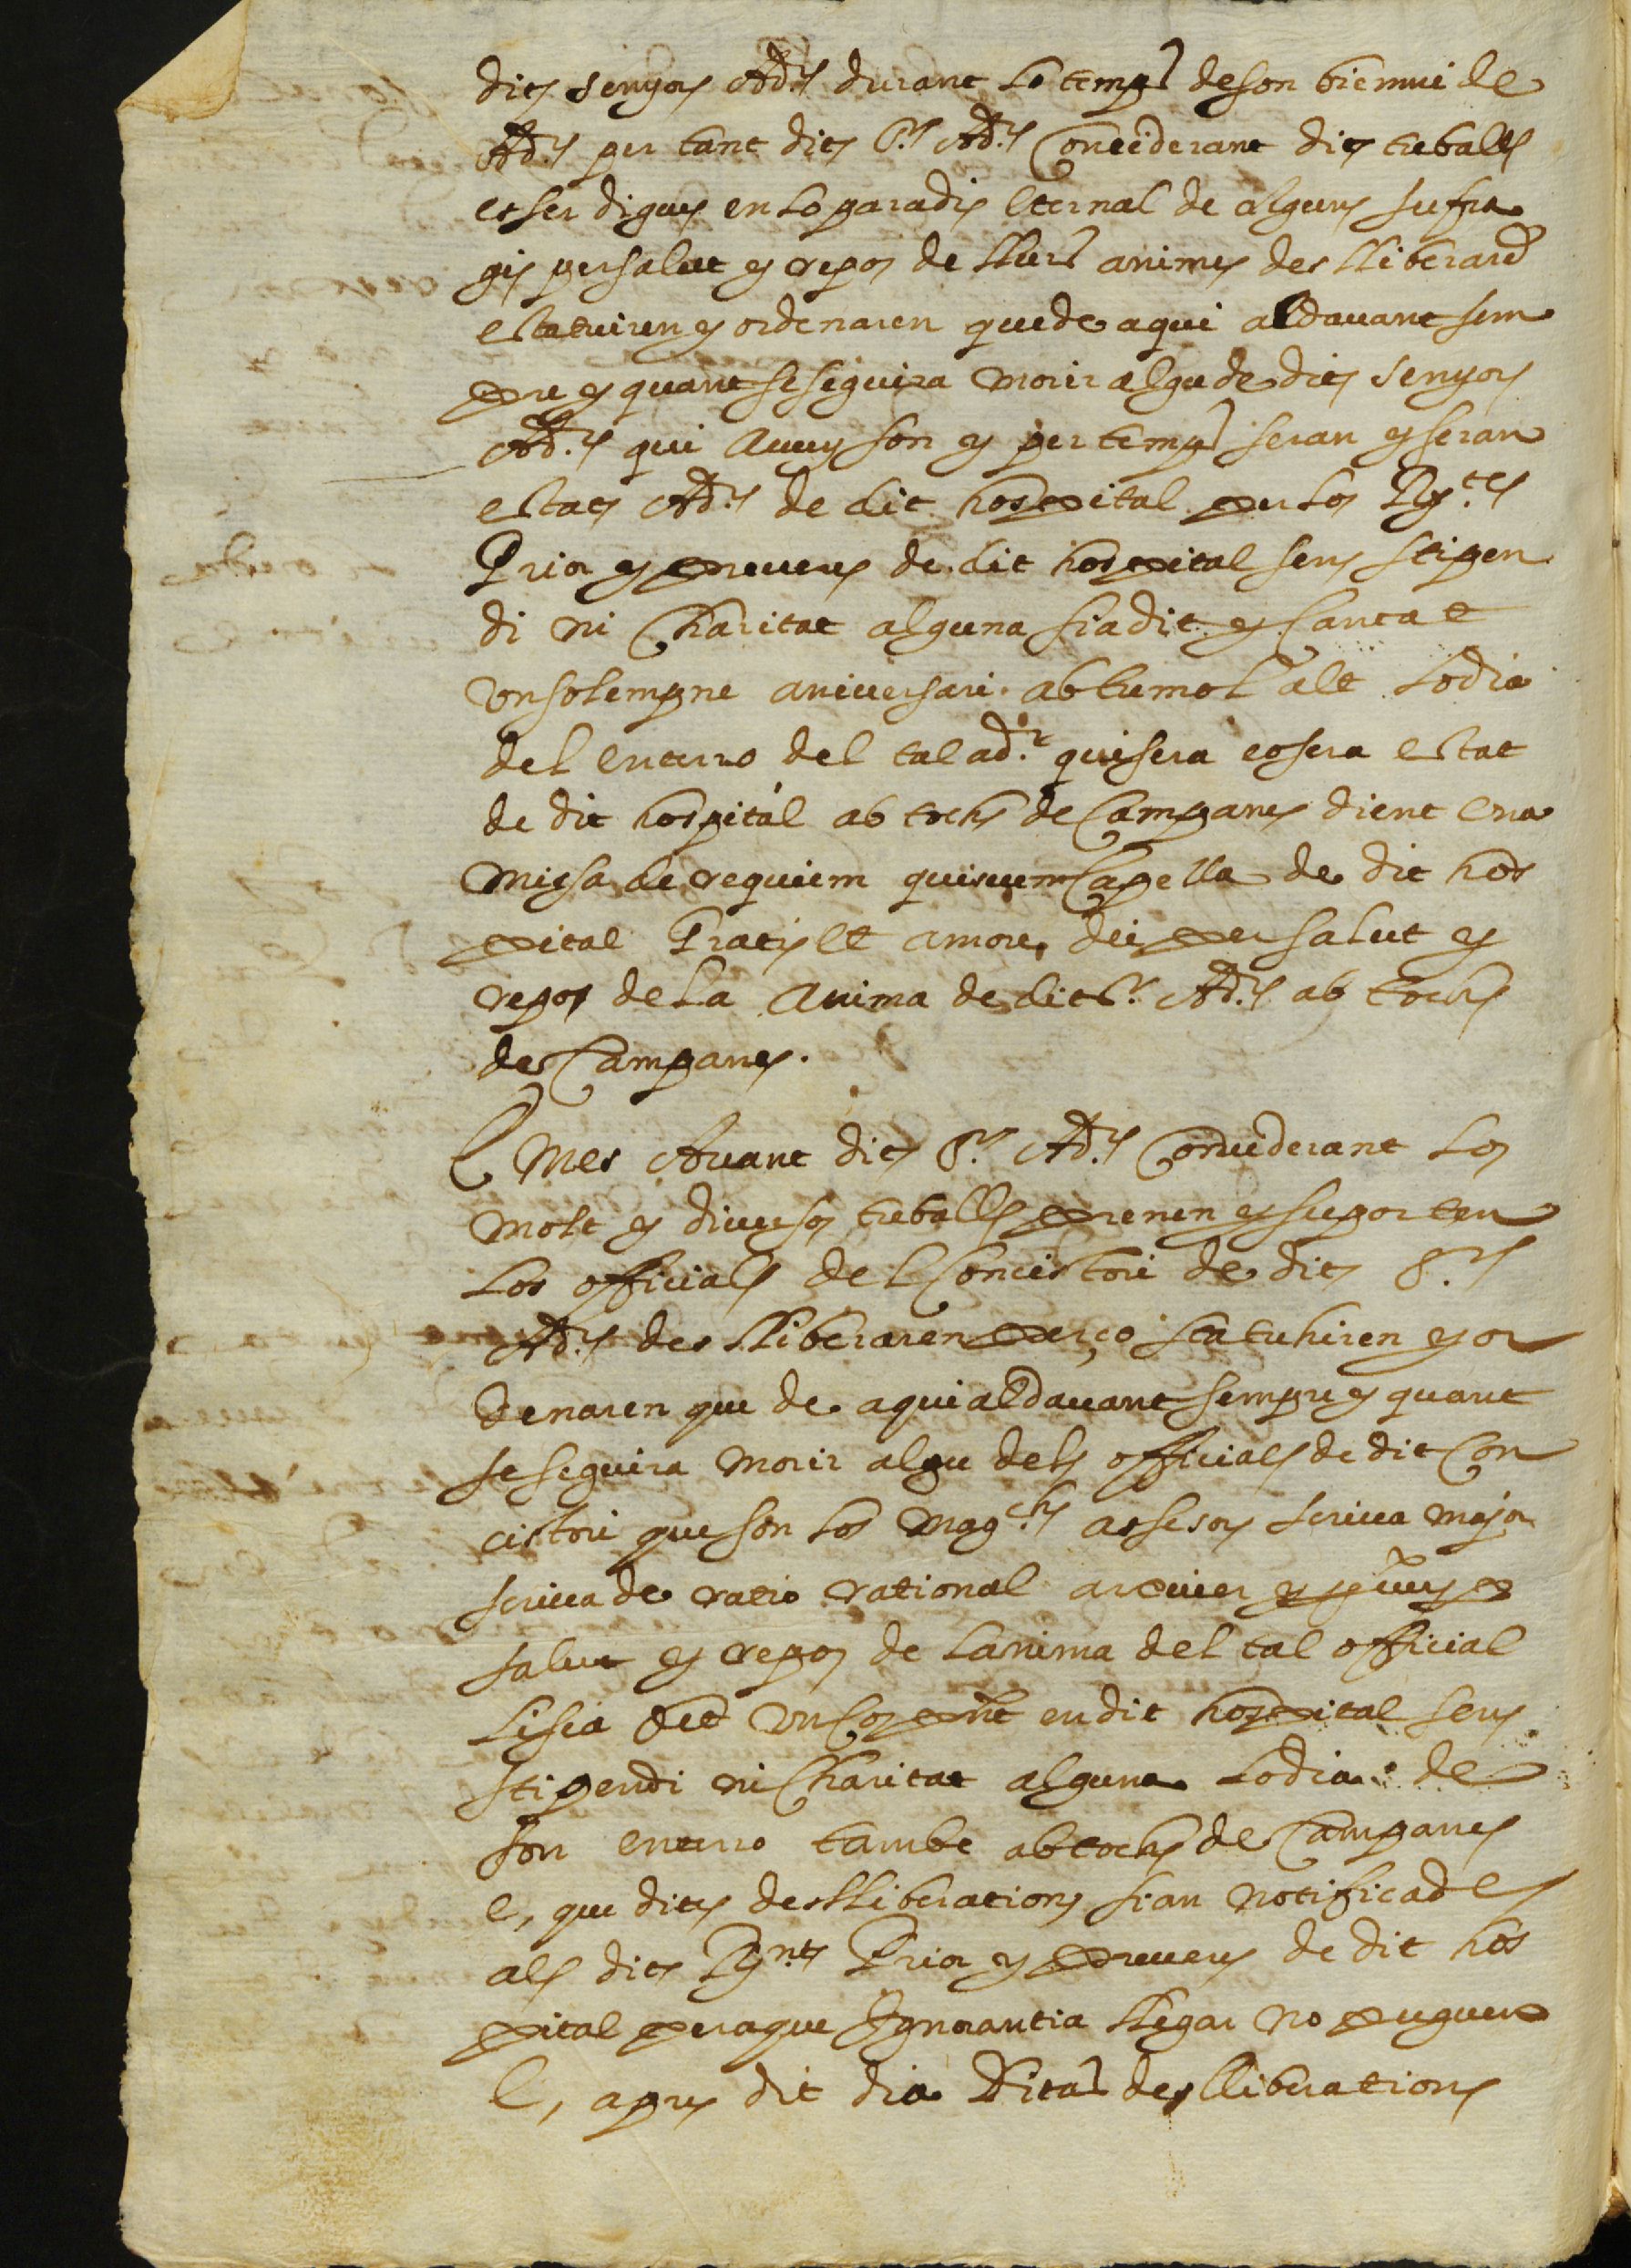 dits senyors Adrs durant lo temps de son bienni de
Adrs per tant dits Srs Adrs Conciderant dits treballs
esser dignes en lo paradis Eternal de alguns sufra
gis per salut y repos de llurs animes deslliberard
estatuiren y ordenaren que de aqui aldauant sem
pre y quant se seguira morir algu de dits senyors
Adrs qui auuy son y per temps seran y seran
estats Adrs de dit hospital per los Rts
Prior y preueres de dit hospital sens stipen
di ni Charitat alguna sia dit y Cantat
vn solempne aniuersari ab tumol alt lo dia
del enterro del tal adr qui sera eo sera estat
de dit hospital ab tochs de Campanes dient Una
missa de requiem quiscun Capella de dit hos
pital Gratis et amore dei per salut y
repos de la Anima de dit Sr Adrs ab tochs
de Campanes.
E mes Auant dits Srs Adrs Considerant los
molt y diuersos treballs prenen y suporten
los officials del Concistori de dits Srs
Adrs deslliberaren perço statuhiren y or
denaren que de aqui aldauant sempre y quant
se seguira morir algu dels officials de dit Con
cistori que son los Magchs assesors scriua major
scriua de ratio rational arxiuer
salut y repos de lanima del tal official
li sia dit vn Cos pnt en dit hospital sens
stipendi ni Charitat alguna lo dia de
son enterro tambe ab tochs de Campanes
e, que dites deslliberations sian notificades
als dits Rnts Prior y preueres de dit hos
pital peraque Ignorantia llegar no puguen
E, apres dit dia Ditas deslliberations